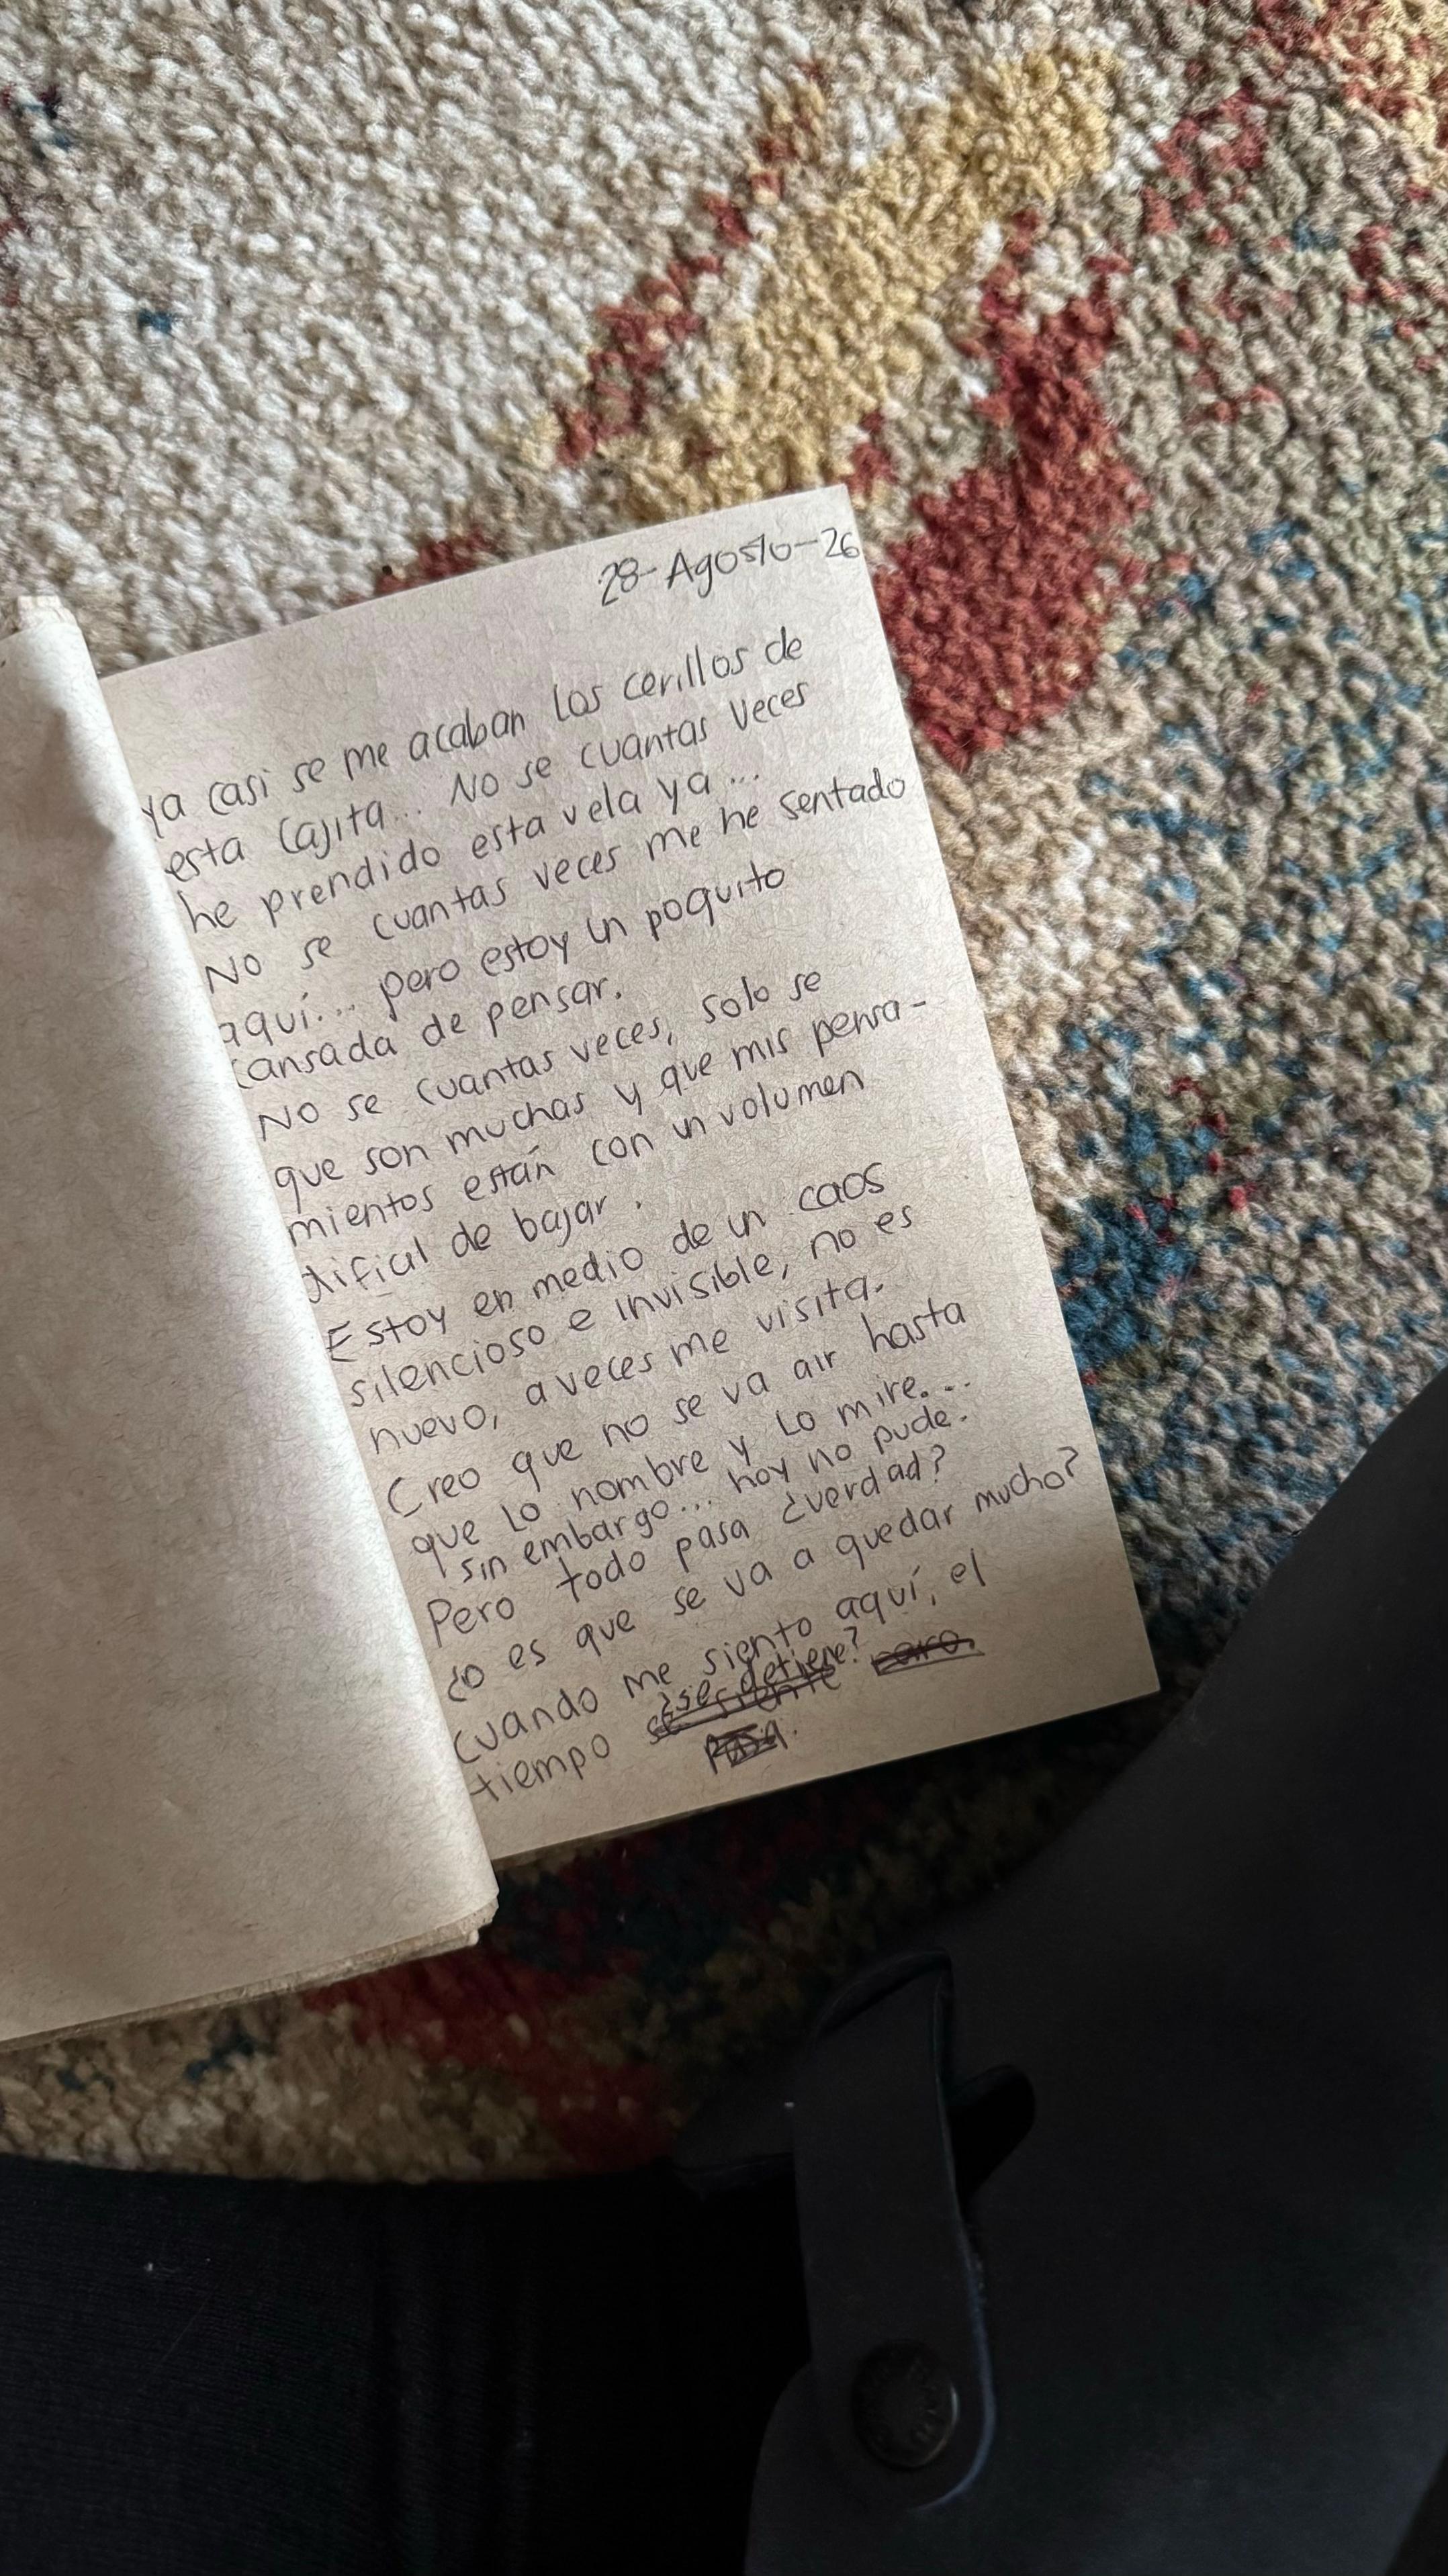 28-Agosto-26
ya casi se me acaban los cerillos de
esta cajita... No se cuantas veces
he prendido esta vela ya...
No se cuantas veces me he sentado
aquí... pero estoy un poquito
cansada de pensar.
No se cuantas veces, solo se
que son muchas y que mis pensa-
mientos están con un volumen
dificil de bajar.
Estoy en medio de un caos
silencioso e invisible, no es
nuevo, a veces me visita.
Creo que no se va a ir hasta
que lo nombre y lo mire...
sin embargo... hoy no pude.
Pero todo pasa ¿verdad?
¿o es que se va a quedar mucho?
Cuando me siento aquí, el
¿se detiene?
tiempo se siente raro.